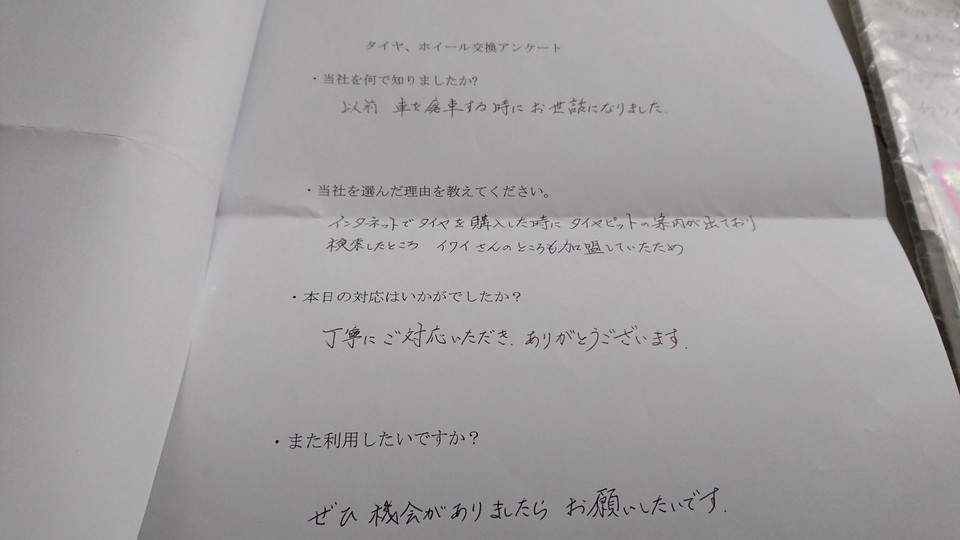 タイヤ、ホイール交換アンケート
・当社を何で知りましたか?
以前 車を廃車する時に お世話になりました.
・当社を選んだ理由を教えてください。
インターネットで タイヤを購入した時に タイヤピットの案内が出ており
検索したところ イワイさんのところも加盟していたため
・本日の対応はいかがでしたか？
丁寧に ご対応いただき. ありがとうございます.
・また利用したいですか？
ぜひ 機会がありましたら お願いしたいです.